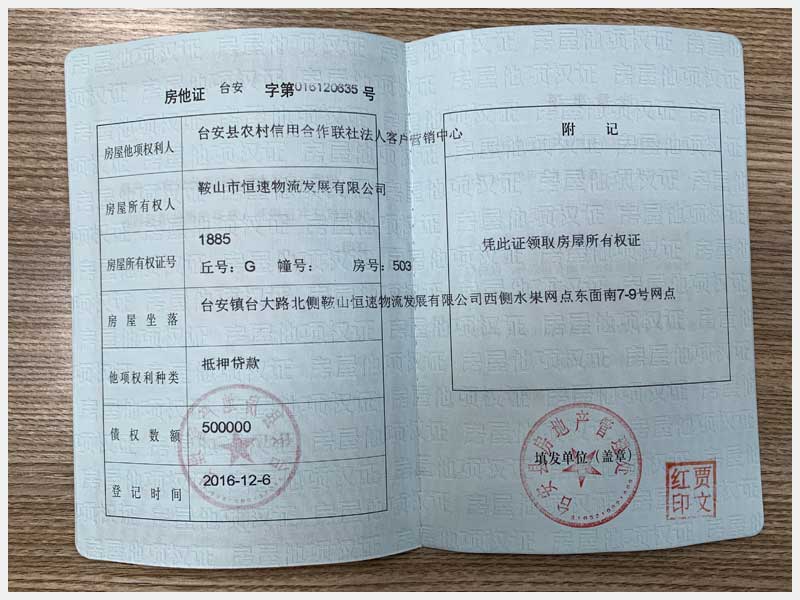 房他证 台安 字第016120635号
房屋他项权利人 台安县农村信用合作联社法人客户营销中心
房屋所有权人 鞍山市恒速物流发展有限公司
房屋所有权证号 1885
丘号：G 幢号： 房号：503
房屋坐落 台安镇台大路北侧鞍山恒速物流发展有限公司西侧水果网点东面南7-9号网点
他项权利种类 抵押贷款
债权数额 500000
登记时间 2016-12-6
附记
凭此证领取房屋所有权证
填发单位（盖章）
台安县房地产管理处
贾文红印